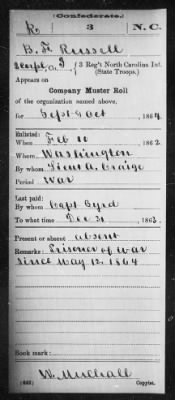 (Confederate.)
R 3 N.C.
B. F. Russell
Co. I, 3 Reg't North Carolina Inf.
(State Troops.)
Appears on
Company Muster Roll
of the organization named above,
for Sept & Oct, 1864.
Enlisted:
When Feb 10, 1862.
Where Washington
By whom Lieut A. Craige
Period War
Last paid:
By whom Capt Cyrd
To what time Dec 31, 1863.
Present or absent absent
Remarks: Prisoner of war
since May 12, 1864
Book mark:
W. Mulhall
(642) Copyist.